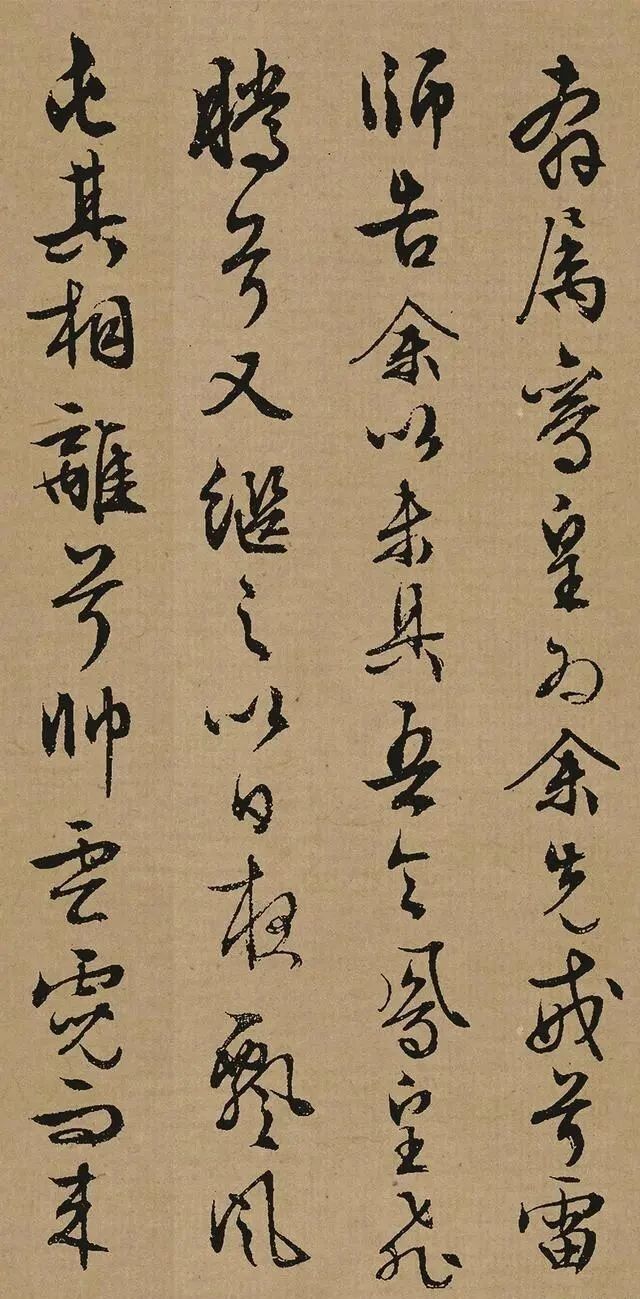 奔屬鸞皇為余先戒兮雷
師告余以未具吾令鳳皇飛
騰兮又繼之以日夜飄風
屯其相離兮帥雲霓而来